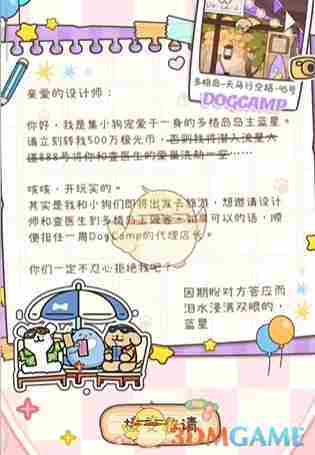 多格岛-天马行空路-95号
DOGCAMP
亲爱的设计师：
你好，我是集小狗宠爱于一身的多格岛岛主蓝星。
请立刻转我500万极光币，否则我将潜入流星大
道888号将你和查医生的零量洗劫一空……
咳咳，开玩笑的。
其实是我和小狗们即将出发去旅游，想邀请设计
师和查医生到多格岛上做客，如果可以的话，顺
便担任一周DogCamp的代理店长。
你们一定不忍心拒绝我吧？
因期盼对方答应而
泪水浸满双眼的，
蓝星
接受邀请
3DMGAME